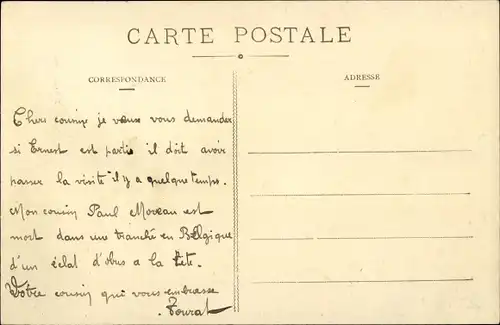 CARTE POSTALE
CORRESPONDANCE
ADRESSE
Chers cousins je veux vous demander
si Ernest est partie il doit avoir
passer la visite il y a quelque temps.
Mon cousin Paul Moreau est
mort dans une tranché en Belgique
d'un éclat d'obus a la tête.
Votre cousin qui vous embrasse